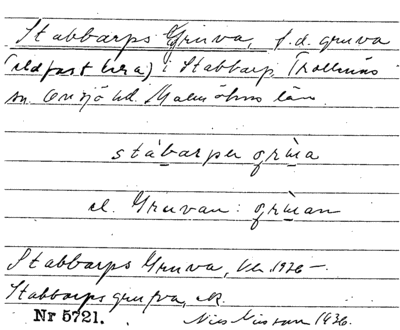 Stabbarps Gruva, f.d. gruva
(eldfast lera) i Stabbarp, Trollenäs
sn. Onsjö hd. Malmöhus län
stábarper grùna
el. Gruvan: grùnan
Stabbarps Gruva, 1926 –
Stabbarps grufva,
Nr 5721.
Nils Nilsson 1936.